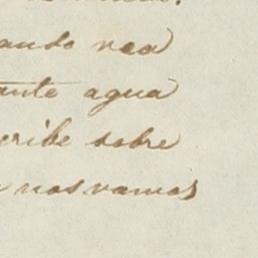 ando vea
ante agua
cribe sobre
nos vamos